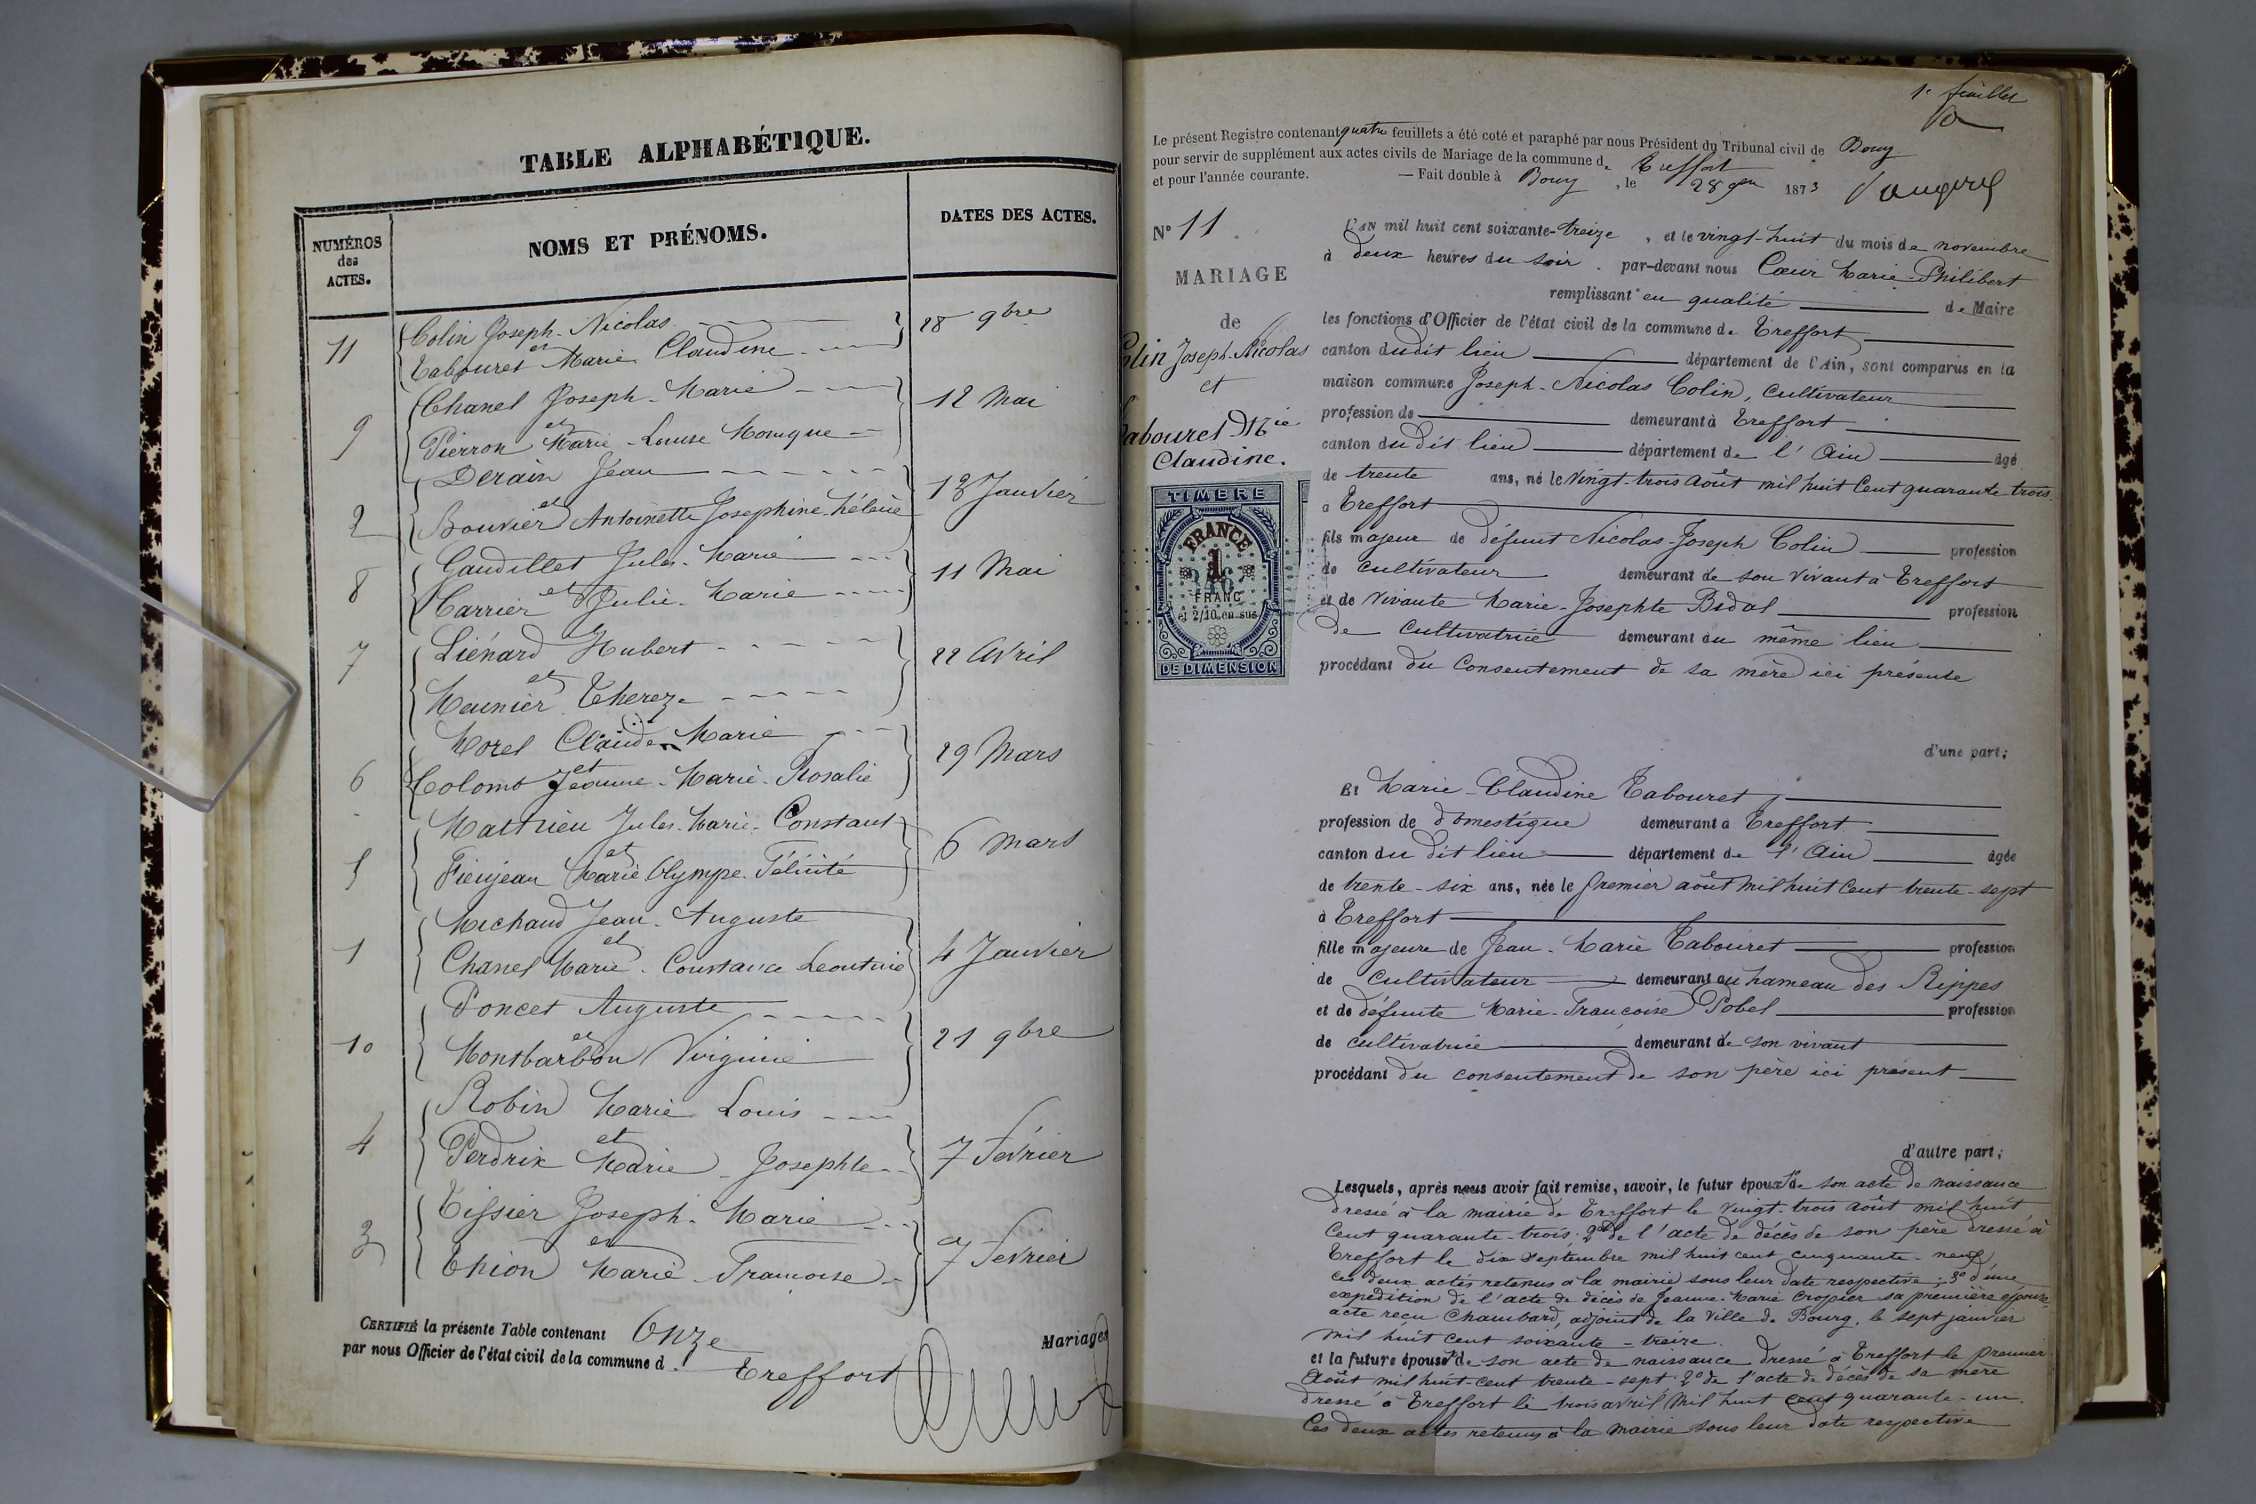 TABLE ALPHABÉTIQUE.
NUMÉROS
des
ACTES.
NOMS ET PRÉNOMS.
DATES DES ACTES.
11
Colin Joseph-Nicolas
28 9bre
et
Tabouret Marie Claudine
9
Chanel Joseph-Marie
12 Mai
et
Pierron Marie-Louise Monique
2
Derain Jean
13 Janvier
et
Bouvier Antoinette Josephine-Hélène
8
Gaudillet Jules-Marie
11 Mai
et
Carrier Julie-Marie
7
Liénard Hubert
22 Avril
et
Meunier Thereze
6
Morel Claude Marie
29 Mars
et
Colomb Jeanne-Marie-Rosalie
5
Matthieu Jules-Marie-Constant
6 Mars
et
Marie Olympe Félicité
1
Michaud Jean-Auguste
4 Janvier
et
Chanel Marie-Constance Leontine
10
Poncet Auguste
21 9bre
et
Montbarbon Virginie
4
Robin Marie Louis
7 Février
et
Perdrix Marie Josephte
3
Tissier Joseph-Marie
7 Février
et
Thion Marie-Francoise
CERTIFIÉ la présente Table contenant Onze Mariages
par nous Officier de l'état civil de la commune d Treffort
1er feuillet
Le présent Registre contenant quatre feuillets a été coté et paraphé par nous Président du Tribunal civil de Bourg
pour servir de supplément aux actes civils de Mariage de la commune de Treffort
et pour l'année courante. — Fait double à Bourg, le 28 9bre 1873
N° 11
MARIAGE
de
Colin Joseph-Nicolas
et
Tabouret Mie
Claudine.
TIMBRE
FRANCE
1
FRANC
et 2/10 en sus
DE DIMENSION
L'AN mil huit cent soixante-treize, et le vingt-huit du mois de novembre
à deux heures du soir. par-devant nous Cœur Marie-Philibert
remplissant en qualité de Maire
les fonctions d'Officier de l'état civil de la commune de Treffort
canton du dit lieu département de l'Ain, sont comparus en la
maison commune Joseph-Nicolas Colin, cultivateur
profession de demeurant à Treffort
canton du dit lieu département de l'Ain âgé
de trente ans, né le Vingt-trois août mil huit Cent quarante trois
à Treffort
fils majeur de défunt Nicolas-Joseph Colin profession
de cultivateur demeurant de son vivant à Treffort
et de vivante Marie-Josephte Bidal profession
de cultivatrice demeurant au même lieu
procédant du Consentement de sa mère ici présente
d'une part;
Et Marie-Claudine Tabouret
profession de domestique demeurant à Treffort
canton du dit lieu département de l'Ain âgée
de trente-six ans, née le premier août mil huit Cent trente-sept
à Treffort
fille majeure de Jean-Marie Tabouret profession
de Cultivateur demeurant au hameau des Rippes
et de défunte Marie-Francoise Pobel profession
de cultivatrice demeurant de son vivant
procédant du consentement de son père ici présent
d'autre part;
Lesquels, après nous avoir fait remise, savoir, le futur époux 1° de son acte de naissance
dressé à la mairie de Treffort le Vingt-trois août mil huit
Cent quarante-trois. 2° de l'acte de décès de son père dressé à
Treffort le dix septembre mil huit cent cinquante-neuf
Ces deux actes retenus à la mairie sous leur date respective; 3° d'une
expédition de l'acte de décès de Jeanne-Marie Cropier sa première épouse
acte reçu Chambard, adjoint de la Ville de Bourg, le sept janvier
mil huit cent soixante-treize.
et la future épouse 1° de son acte de naissance dressé à Treffort le premier
Août mil huit-cent trente-sept 2° de l'acte de décès de sa mère
dressé à Treffort le trois avril mil huit cent quarante-un.
Ces deux actes retenus à la mairie sous leur date respective